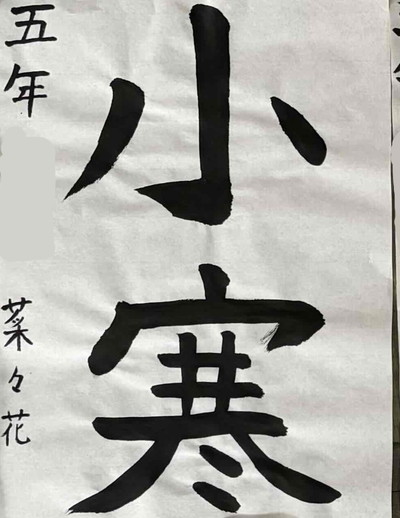 小寒
五年
菜々花